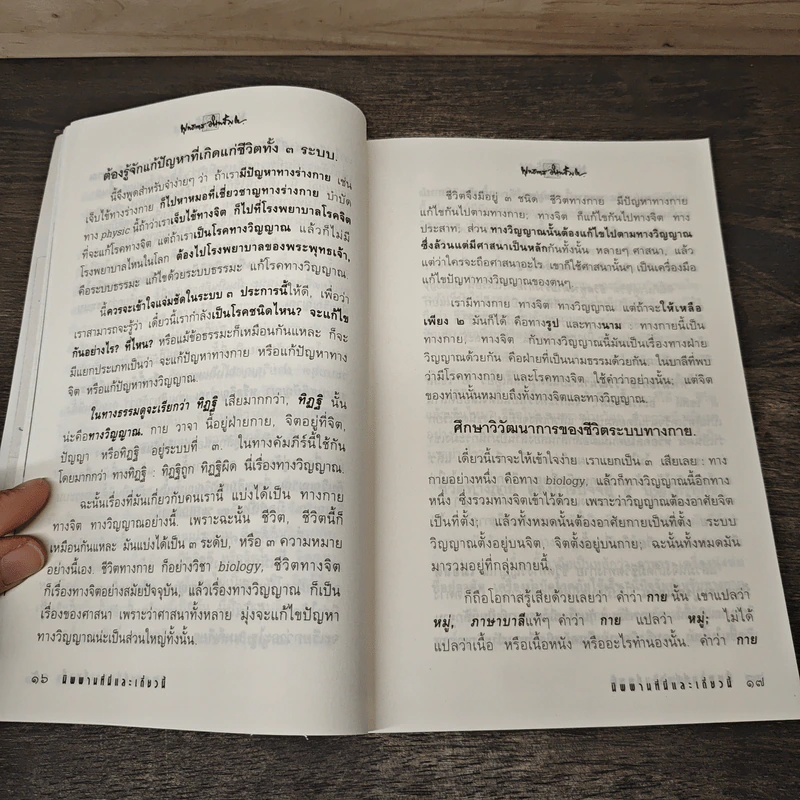 ต้องรู้จักแก้ปัญหาที่เกิดแก่ชีวิตทั้ง ๓ ระบบ.
นี้จึงพูดสำหรับจำง่ายๆ ว่า ถ้าเรามีปัญหาทางร่างกาย เช่น
เจ็บไข้ทางร่างกาย ก็ไปหาหมอที่เชี่ยวชาญทางร่างกาย บำบัด
ทาง physic นี้ถ้าว่าเราเจ็บไข้ทางจิต ก็ไปที่โรงพยาบาลโรคจิต
ที่จะแก้โรคทางจิต แต่ถ้าเราเป็นโรคทางวิญญาณ แล้วก็ไม่มี
โรงพยาบาลไหนในโลก ต้องไปโรงพยาบาลของพระพุทธเจ้า,
คือระบบธรรมะ แก้ไขด้วยระบบธรรมะ แก้โรคทางวิญญาณ.
นี้ควรจะเข้าใจแจ่มชัดในระบบ ๓ ประการนี้ให้ดี, เพื่อว่า
เราสามารถจะรู้ว่า เดี๋ยวนี้เรากำลังเป็นโรคชนิดไหน? จะแก้ไข
กันอย่างไร? ที่ไหน? หรือแม้ข้อธรรมะก็เหมือนกันแหละ ก็จะ
มีแยกประเภทเป็นว่า จะแก้ปัญหาทางกาย หรือแก้ปัญหาทาง
จิต หรือแก้ปัญหาทางวิญญาณ.
ในทางธรรมดูจะเรียกว่า ทิฏฐิ เสียมากกว่า, ทิฏฐิ นั้น
น่ะคือทางวิญญาณ. กาย วาจา นี้อยู่ฝ่ายกาย, จิตอยู่ที่จิต,
ปัญญา หรือทิฏฐิ อยู่ระบบที่ ๓. ในทางคัมภีร์นี้ใช้กัน
โดยมากกว่า ทางทิฏฐิ : ทิฏฐิถูก ทิฏฐิผิด นี่เรื่องทางวิญญาณ.
ฉะนั้นเรื่องที่มันเกี่ยวกับคนเรานี้ แบ่งได้เป็น ทางกาย
ทางจิต ทางวิญญาณอย่างนี้. เพราะฉะนั้น ชีวิต, ชีวิตนี้ก็
เหมือนกันแหละ มันแบ่งได้เป็น ๓ ระดับ, หรือ ๓ ความหมาย
อย่างนี้เอง. ชีวิตทางกาย ก็อย่างวิชา biology, ชีวิตทางจิต
ก็เรื่องทางจิตอย่างสมัยปัจจุบัน, แล้วเรื่องทางวิญญาณ ก็เป็น
เรื่องของศาสนา เพราะว่าศาสนาทั้งหลาย มุ่งจะแก้ไขปัญหา
ทางวิญญาณน่ะเป็นส่วนใหญ่ทั้งนั้น.
๑๖ นิพพานที่นี่และเดี๋ยวนี้
ชีวิตจึงมีอยู่ ๓ ชนิด ชีวิตทางกาย มีปัญหาทางกาย
แก้ไขกันไปตามทางกาย; ทางจิต ก็แก้ไขกันไปทางจิต ทาง
ประสาท; ส่วน ทางวิญญาณนั้นต้องแก้ไขไปตามทางวิญญาณ
ซึ่งล้วนแต่มีศาสนาเป็นหลักกันทั้งนั้น หลายๆ ศาสนา, แล้ว
แต่ว่าใครจะถือศาสนาอะไร เขาก็ใช้ศาสนานั้นๆ เป็นเครื่องมือ
แก้ไขปัญหาทางวิญญาณของตนๆ.
เรามีทางกาย ทางจิต ทางวิญญาณ แต่ถ้าจะให้เหลือ
เพียง ๒ มันก็ได้ คือทางรูป และทางนาม : ทางกายนี้เป็น
ทางกาย, ทางจิต กับทางวิญญาณนี้มันเป็นเรื่องทางฝ่าย
วิญญาณด้วยกัน คือฝ่ายที่เป็นนามธรรมด้วยกัน. ในบาลีที่พบ
ว่ามีโรคทางกาย และโรคทางจิต ใช้คำว่าอย่างนั้น; แต่จิต
ของท่านนั้นหมายถึงทั้งทางจิตและทางวิญญาณ.
ศึกษาวิวัฒนาการของชีวิตระบบทางกาย.
เดี๋ยวนี้เราจะให้เข้าใจง่าย เราแยกเป็น ๓ เสียเลย : ทาง
กายอย่างหนึ่ง คือทาง biology, แล้วก็ทางวิญญาณนี้อีกทาง
หนึ่ง ซึ่งรวมทางจิตเข้าไว้ด้วย เพราะว่าวิญญาณต้องอาศัยจิต
เป็นที่ตั้ง; แล้วทั้งหมดนั้นต้องอาศัยกายเป็นที่ตั้ง ระบบ
วิญญาณตั้งอยู่บนจิต, จิตตั้งอยู่บนกาย; ฉะนั้นทั้งหมดมัน
มารวมอยู่ที่กลุ่มกายนี้.
ก็ถือโอกาสรู้เสียด้วยเลยว่า คำว่า กาย นั้น เขาแปลว่า
หมู่, ภาษาบาลีแท้ๆ คำว่า กาย แปลว่า หมู่; ไม่ได้
แปลว่าเนื้อ หรือเนื้อหนัง หรืออะไรทำนองนั้น. คำว่า กาย
นิพพานที่นี่และเดี๋ยวนี้ ๑๗